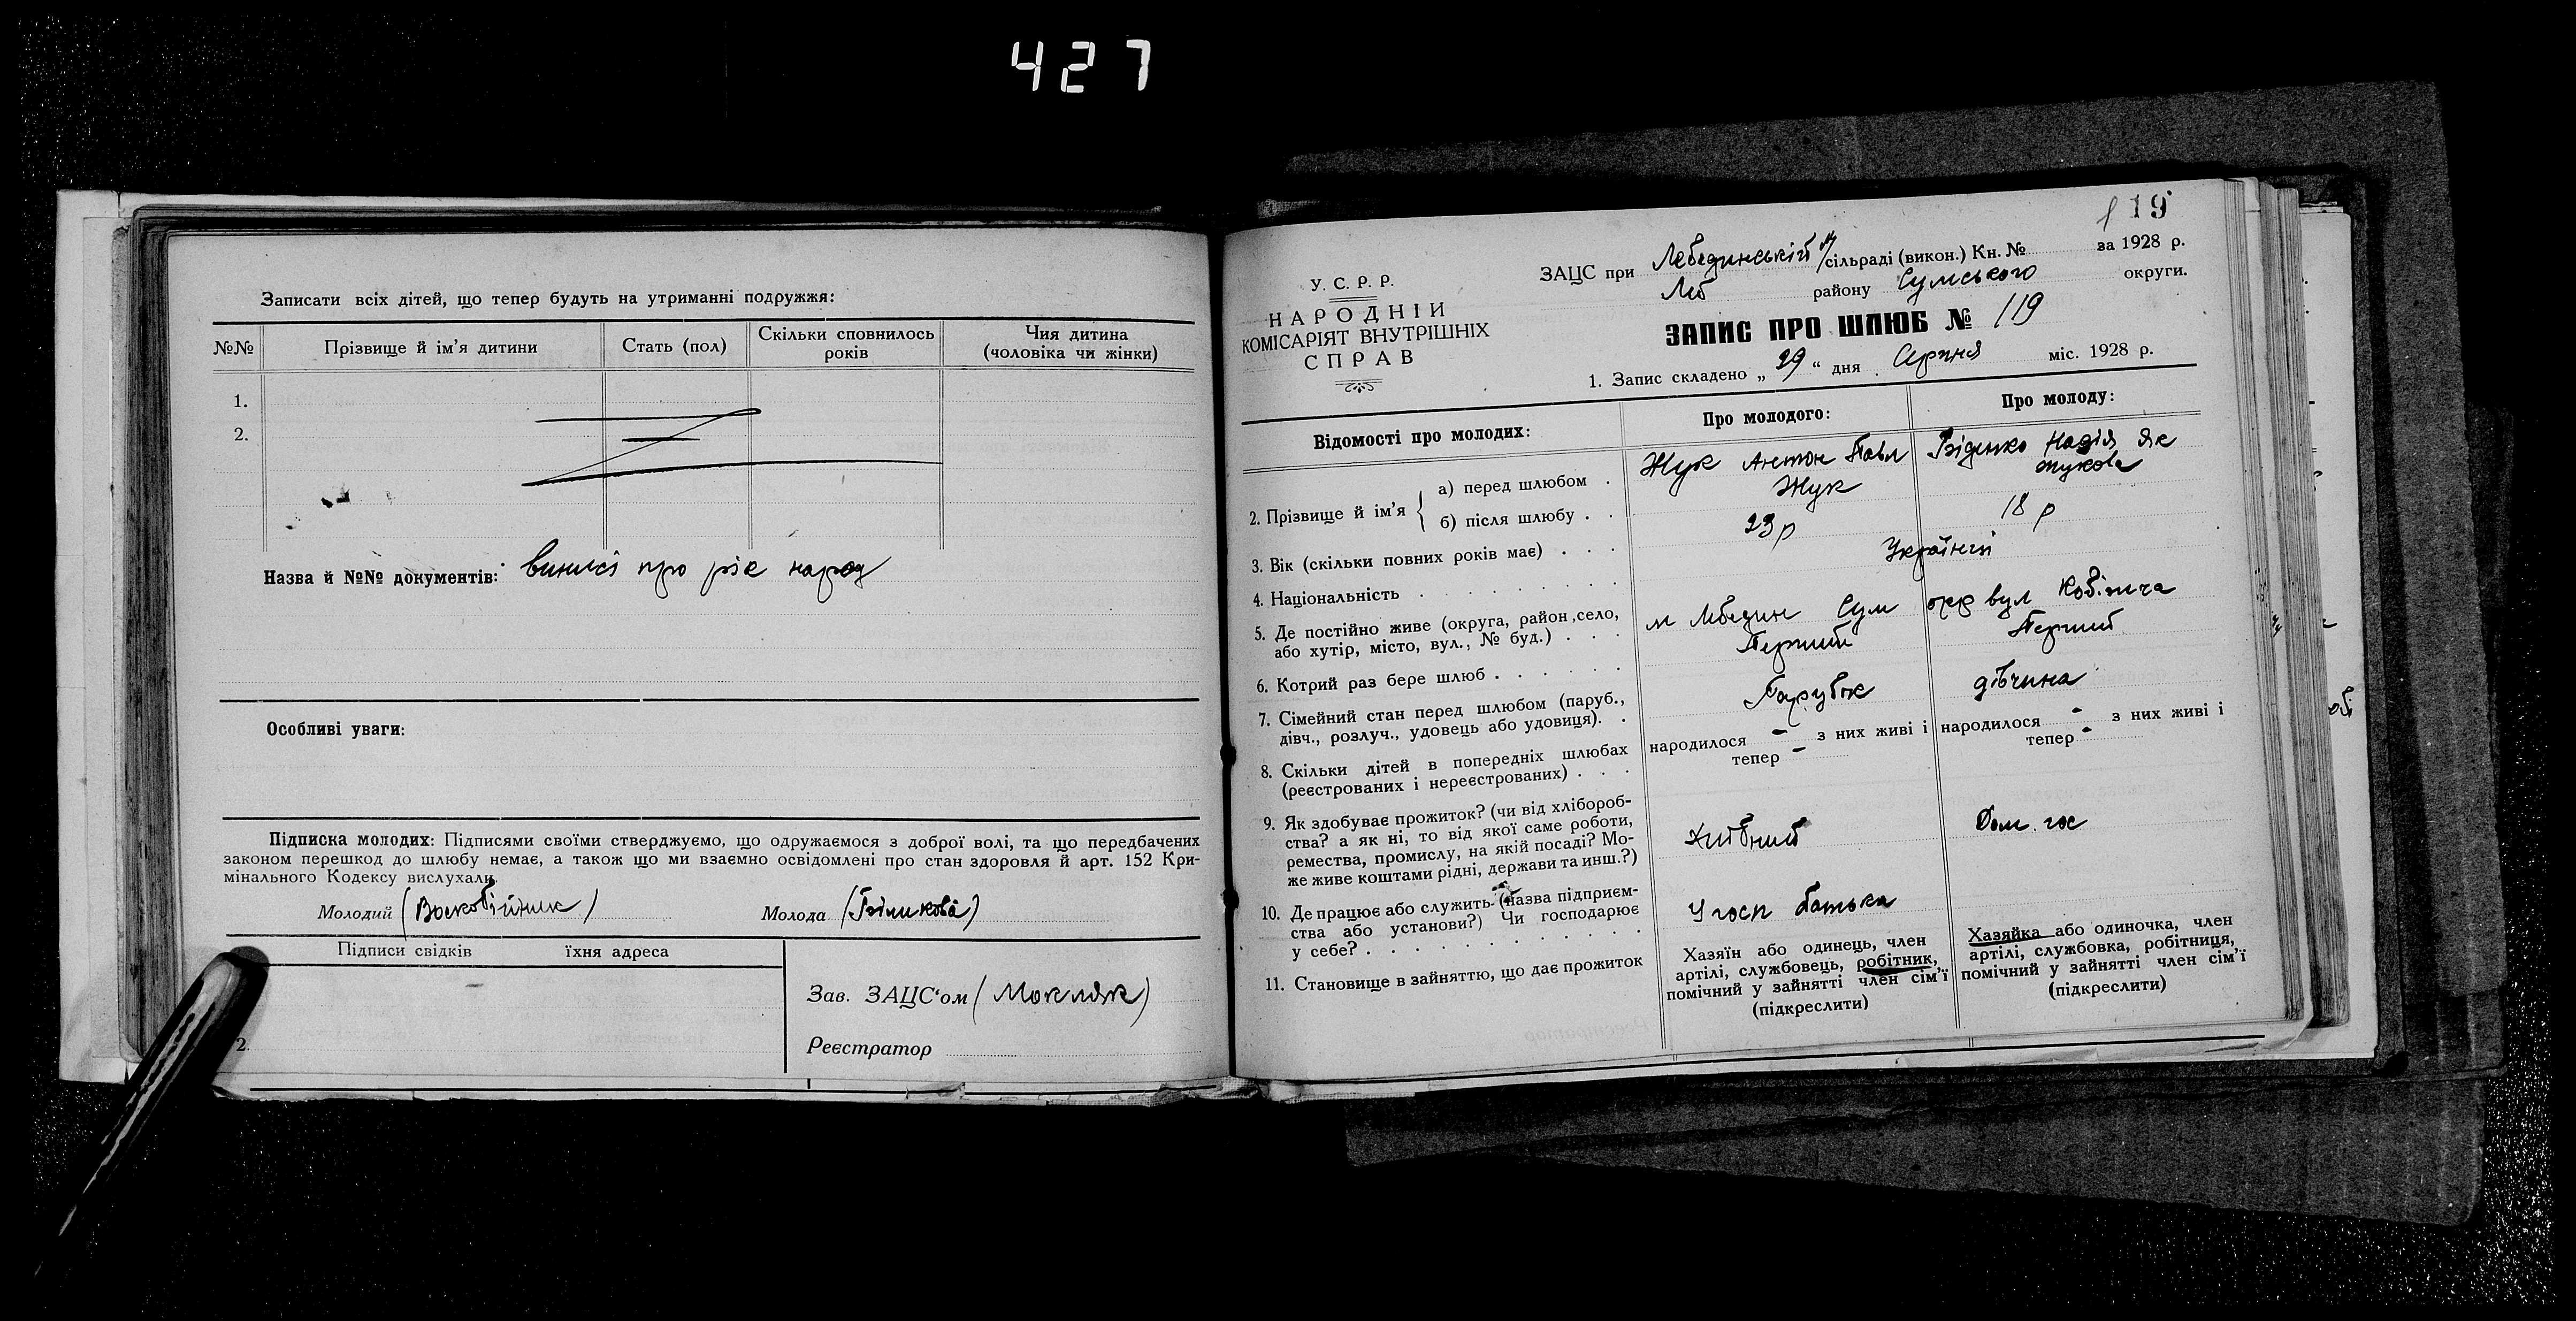 427
Записати всіх дітей, що тепер будуть на утриманні подружжя:
№№ Прізвище й ім'я дитини Стать (пол) Скільки сповнилось років Чия дитина (чоловіка чи жінки)
1.
2.
Назва й №№ документів: про рік народ
Особливі уваги:
Підписка молодих: Підписями своїми стверджуємо, що одружаємося з доброї волі, та що передбачених
законом перешкод до шлюбу немає, а також що ми взаємно освідомлені про стан здоровля й арт. 152 Кри-
мінального Кодексу вислухали.
Молодий (Воскобійник) Молода (Біликова)
Підписи свідків їхня адреса
Зав. ЗАЦС'ом (Мокляк)
2.
Реєстратор
119
У. С. Р. Р.
НАРОДНІЙ
КОМІСАРІЯТ ВНУТРІШНІХ
СПРАВ
ЗАЦС при Лебединській м/сільраді (викон.) Кн. № за 1928 р.
Леб району Сумського округи.
ЗАПИС ПРО ШЛЮБ № 119
1. Запис складено „29“ дня Серпня міс. 1928 р.
Відомості про молодих: Про молодого: Про молоду:
2. Прізвище й ім'я { а) перед шлюбом . Жук Антон Павл Надія Як
б) після шлюбу . . Жук Жукова
3. Вік (скільки повних років має) . . . 23 р 18 р
4. Національність Українці
5. Де постійно живе (округа, район, село,
або хутір, місто, вул., № буд.) . . . м Лебедин Сум окр вул
6. Котрий раз бере шлюб . . . . . . Перший Перший
7. Сімейний стан перед шлюбом (паруб.,
дівч., розлуч., удовець або удовиця). . Парубок дівчина
8. Скільки дітей в попередніх шлюбах
(реєстрованих і нереєстрованих) . . . народилося - з них живі і тепер - народилося - з них живі і тепер -
9. Як здобуває прожиток? (чи від хлібороб-
ства? а як ні, то від якої саме роботи,
ремества, промислу, на якій посаді? Мо-
же живе коштами рідні, держави та инш.?) Дом. гос
10. Де працює або служить (назва підприєм-
ства або установи?) Чи господарює
у себе? . . . . . . . . . . . У госп батька
11. Становище в зайняттю, що дає прожиток
Хазяїн або одинець, член
артілі, службовець, робітник,
помічний у зайнятті член сім'ї
(підкреслити)
Хазяйка або одиночка, член
артілі, службовка, робітниця,
помічний у зайнятті член сім'ї
(підкреслити)